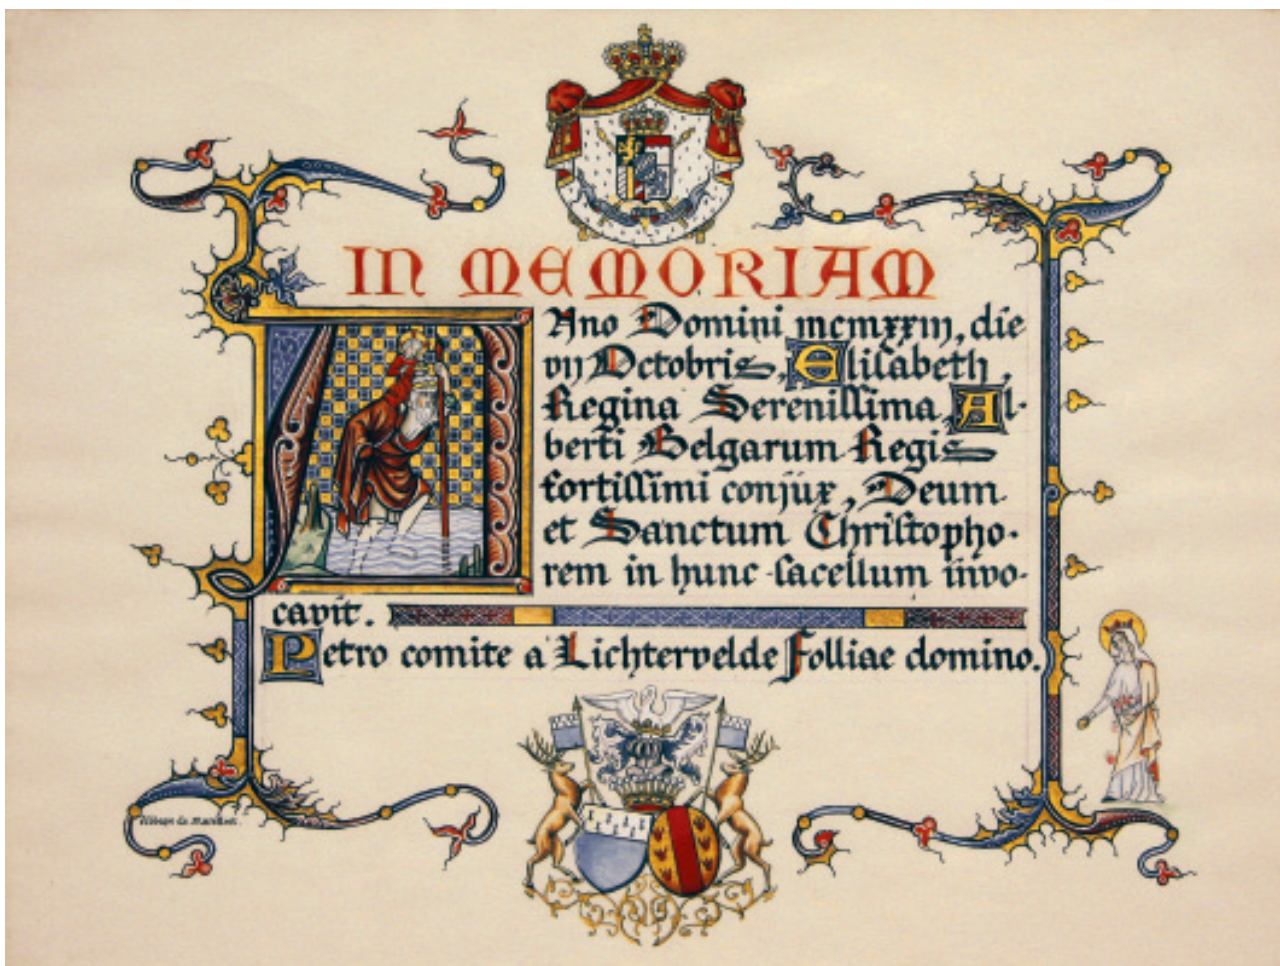 IN MEMORIAM
Ano Domini mcmxxiij, die
vij Octobris, Elisabeth,
Regina Serenissima, Al-
berti Belgarum Regis
fortissimi conjux, Deum
et Sanctum Christopho-
rem in hunc sacellum invo-
cavit.
Petro comite a Lichtervelde Folliae domino.
Abbaye de Maredret.